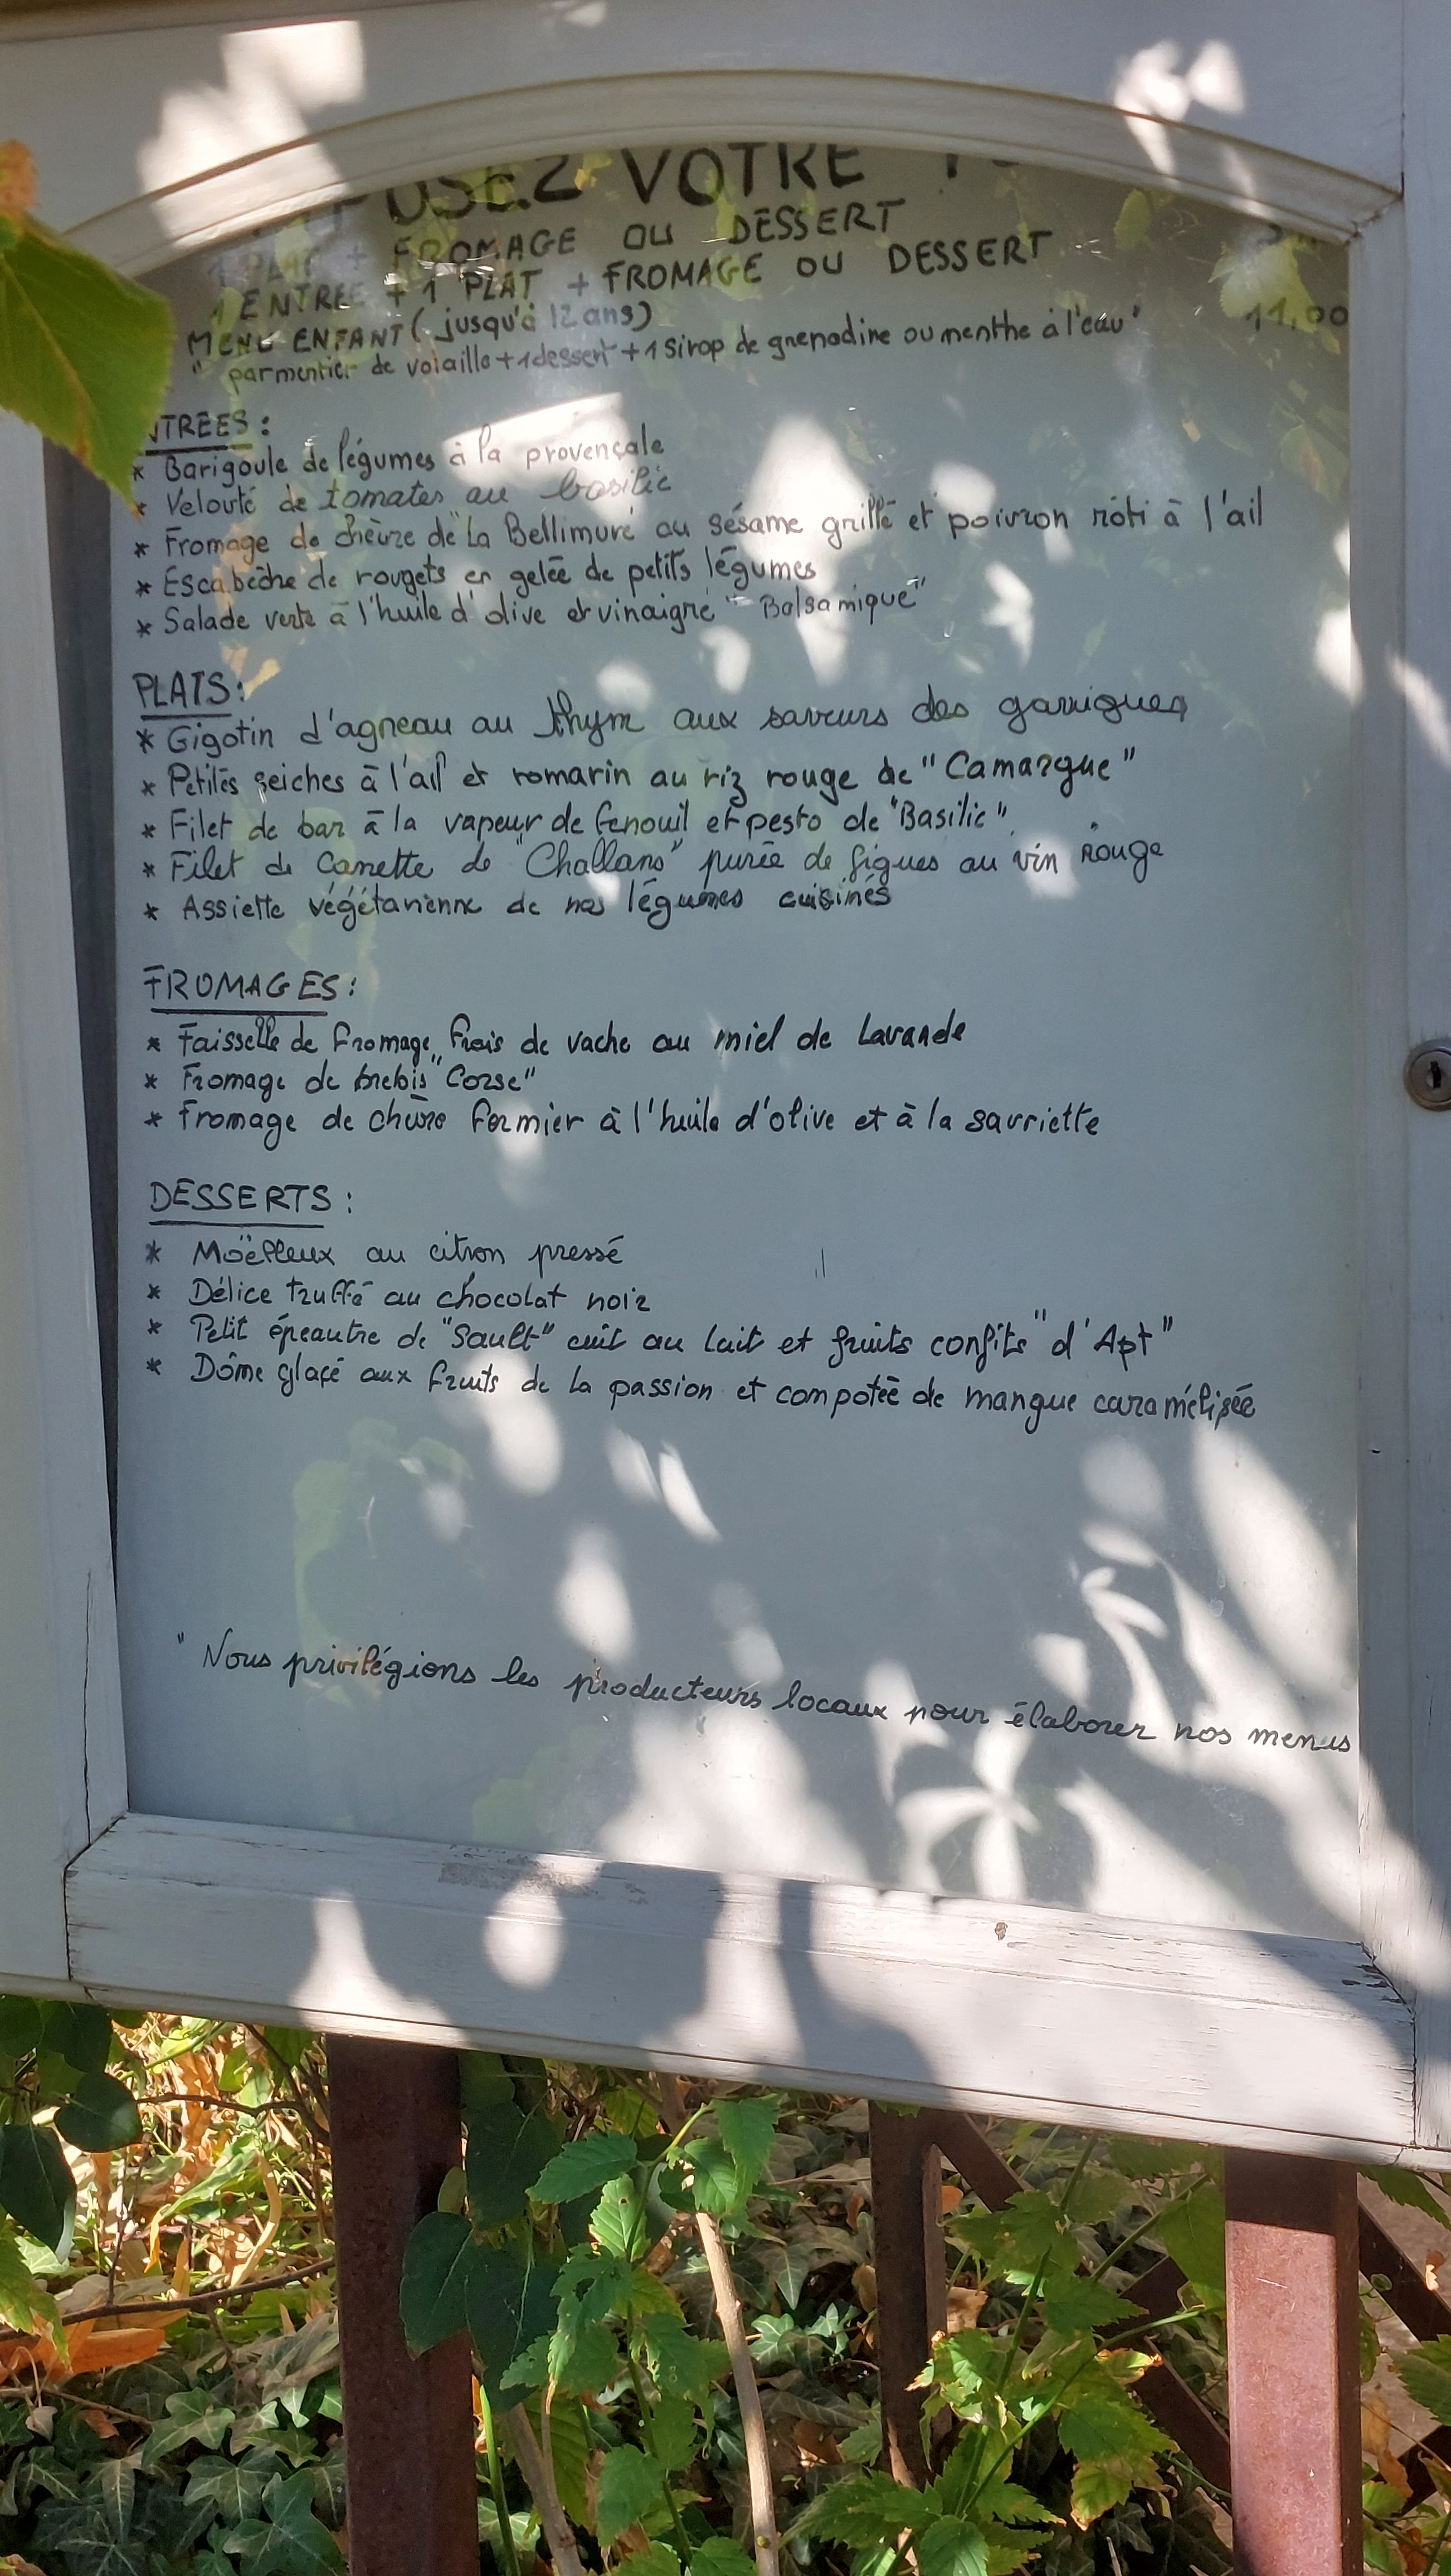 POSEZ VOTRE
1 PLAT + FROMAGE OU DESSERT
1 ENTREE + 1 PLAT + FROMAGE OU DESSERT
MENU ENFANT (jusqu'à 12 ans) 11,00
" parmentier de volaille + 1 dessert + 1 sirop de grenadine ou menthe à l'eau"
NTREES :
* Barigoule de légumes à la provençale
* Velouté de tomates au basilic
* Fromage de chèvre de "La Bellimure au sésame grillé et poivron rôti à l'ail
* Escabèche de rougets en gelée de petits légumes
* Salade verte à l'huile d'olive et vinaigre "Balsamique"
PLATS :
* Gigotin d'agneau au thym aux saveurs des garrigues
* Petites seiches à l'ail et romarin au riz rouge de "Camargue"
* Filet de bar à la vapeur de fenouil et pesto de "Basilic"
* Filet de Canette de "Challans" purée de figues au vin rouge
* Assiette végétarienne de nos légumes cuisinés
FROMAGES :
* Faisselle de fromage frais de vache au miel de Lavande
* Fromage de brebis "Corse"
* Fromage de chèvre fermier à l'huile d'olive et à la sarriette
DESSERTS :
* Moëlleux au citron pressé
* Délice truffé au chocolat noir
* Petit épeautre de "Sault" cuit au lait et fruits confits "d'Apt"
* Dôme glaçé aux fruits de la passion et compotée de mangue caramélisée
" Nous privilégions les producteurs locaux pour élaborer nos menus